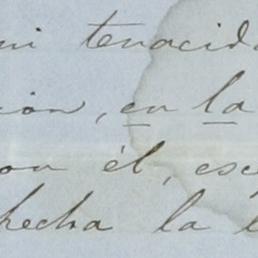 mi tenacid
ción, en la
con él, esc
hecha la l